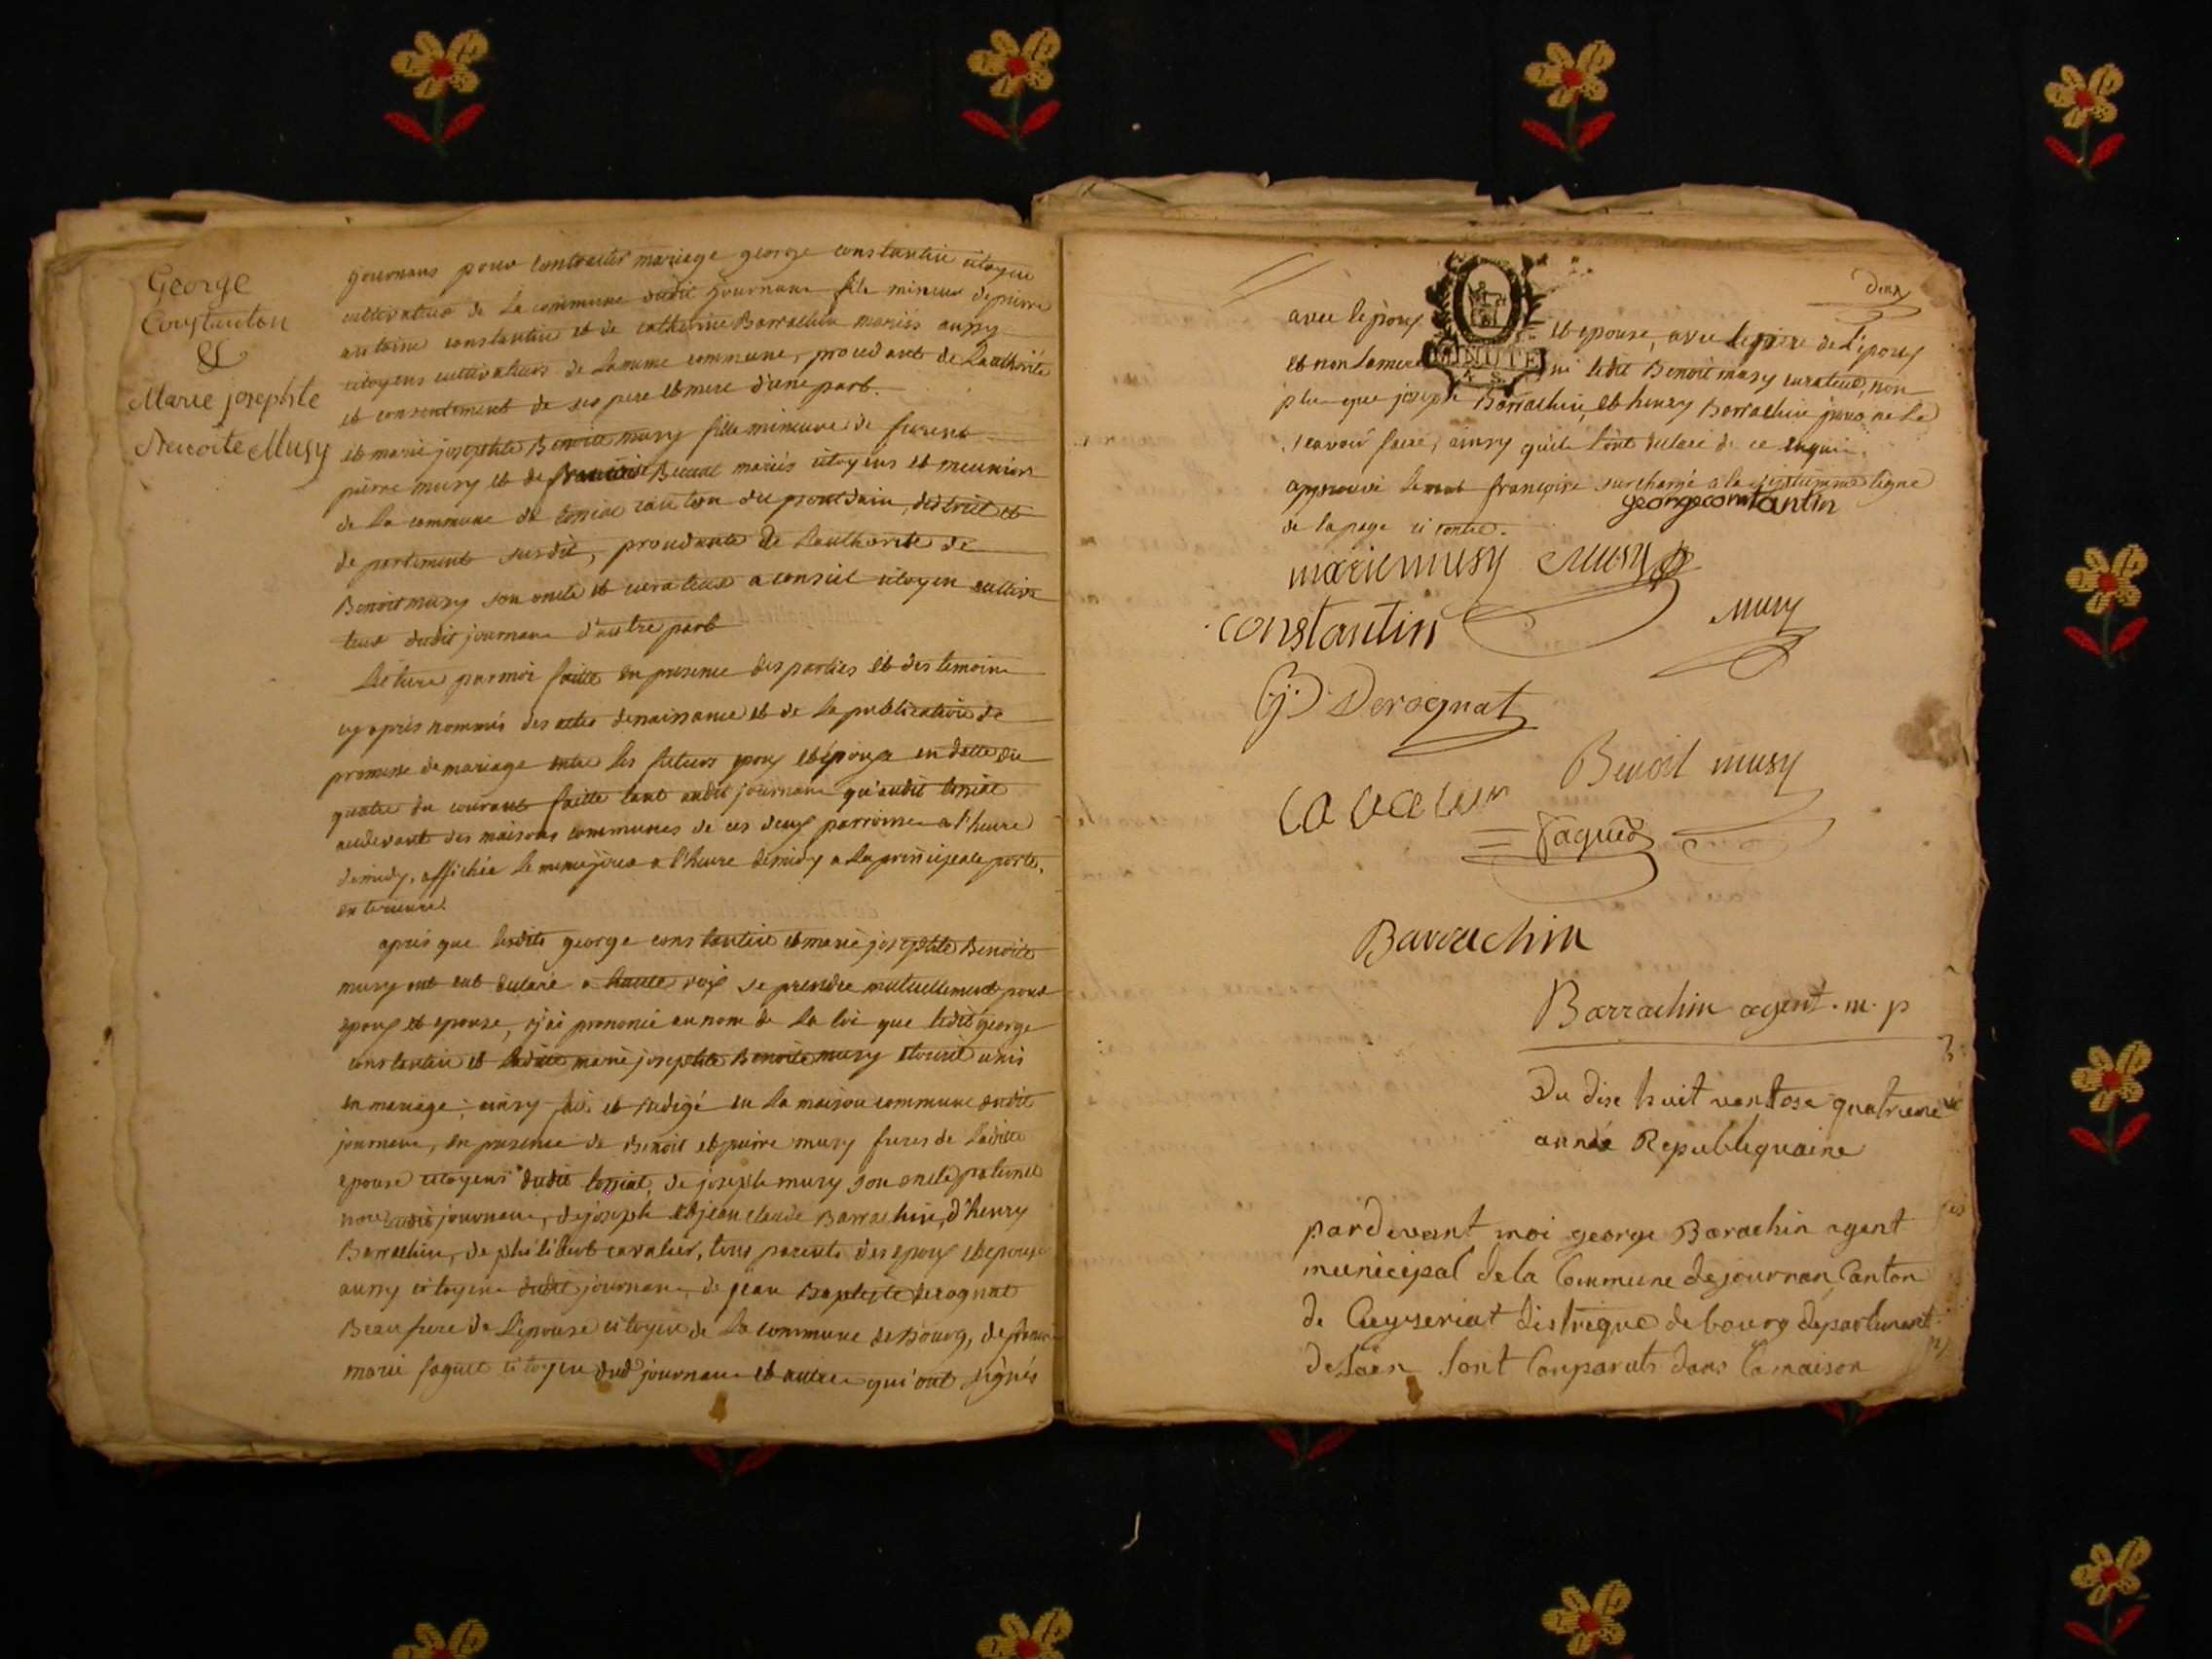 George
Constanton
&
Marie josephte
Benoite Musy
journans pour contracter mariage george constantin citoyen
cultivateur de la commune dudit journans fils mineur de pierre
antoine constantin et de catherine Barrachin mariés aussy
citoyens cultivateurs de la meme commune, procedant de l'authorité
et consentement de ses pere et mere d'une part.
et marie josephte Benoite musy fille mineure de furent
pierre musy et de francoise mariés citoyens et meunier
de la commune de tossiat canton du pont dain, district et
departement susdit, procedante de l'authorité de
Benoit musy son oncle et curateur a conseil citoyen cultiva
teur dudit journans d'autre part
Lecture par moi faitte en presence des parties et des temoins
cy après nommés des actes de naissance et de la publication de
promesse de mariage entre les futurs epoux et épouse en datte du
quatre du courant faitte tant audit journans qu'audit tossiat
audevant des maisons communes de ces deux parroisses a l'heure
de midy, affichée le meme jour a l'heure de midy a la principale porte
exterieure.
après que lesdits george constantin et marie josephte Benoite
musy ont eut declaré a haute voix se prendre mutuellement pour
epoux et epouse, j'ai prononcé au nom de la loi que ledit george
constantin et laditte marie josephte Benoite musy etoient unis
en mariage; ainsy fait et redigé en la maison commune dudit
journans, en presence de Benoit et pierre musy freres de laditte
epouse citoyens dudit tossiat, de joseph musy son oncle paternel
dudit journans, de joseph et jean claude Barrachin, d'henry
Barrachin, de philibert cavalier, tous parents des epoux et epouse
aussy citoyens dudit journans, de jean Baptiste derognat
Beaufrere de l'epouse citoyen de la commune de Bourg, de
marie faguet citoyen dud journans et autres qui ont signés
deux
avec l'époux et epouse, avec le pere de l'époux
MINUTE
4 S.
et non la mere ni ledit Benoit musy curateur, non
plus que joseph Barrachin, et henry Barrachin pour ne le
scavoir faire, ainsy qu'ils l'ont declaré de ce enquis.
approuvé le mot françoise surchargé a la septiemme ligne
de la page ci contre.
georgeconstantin
marie musy Musy
constantin
Musy
Derognat
Benoit musy
cavalier
faguet
Barrachin
Barrachin agent. m. p
Du dise huit vantose quatrieme
année Republiquaine
pardevant moi george Barachin agent
municipal de la Commune de journan Canton
de Ceyseriat districque de bourg departement
de Lain sont Comparuts dans la maison